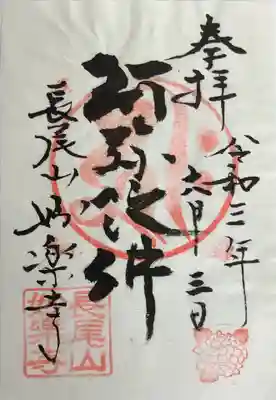 奉拝
令和三年
六月三日
阿弥陀仏
長尾山妙楽寺
長尾山
妙楽寺